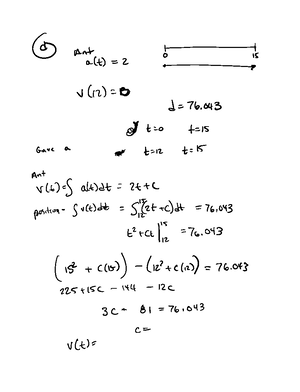 d
Ant
a(t) = 2
0 15
v(12) = 0
d = 76.043
t=0 t=15
Gave a t=12 t=15
Ant
v(t) = ∫ a(t)dt = 2t+c
position - ∫ v(t)dt = ∫₁₂¹⁵ (2t+c)dt = 76.043
t² + ct |₁₂¹⁵ = 76.043
(15² + c(15)) - (12² + c(12)) = 76.043
225 + 15c - 144 - 12c
3c - 81 = 76.043
c=
v(t)=